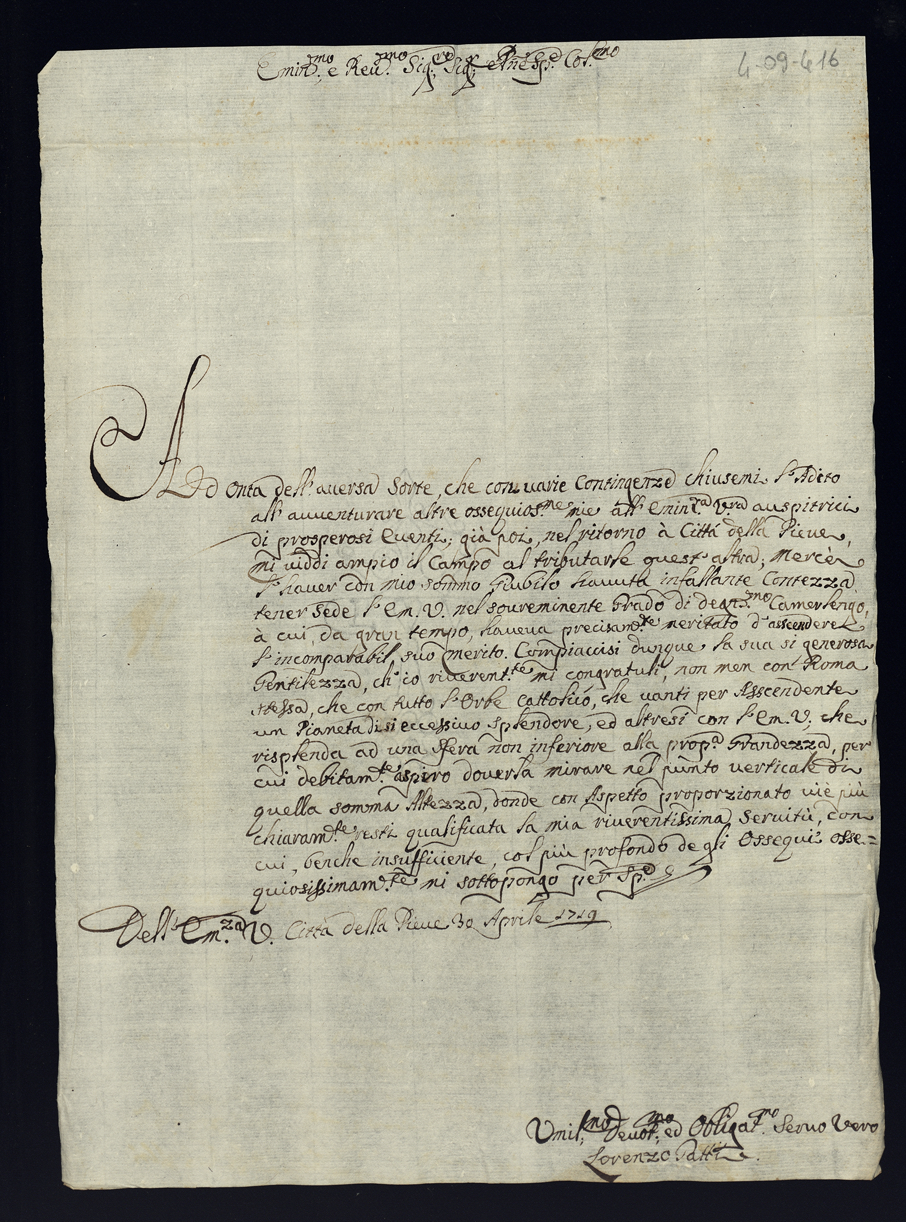 Emin.mo, e Reu.mo Sig.re Sig.re e Col.mo
4-09-416
Ad onta dell'auersa Sorte, che con uarie Contingenze chiusemi l'Adito
all'auuenturare altre ossequios.me mie all'Emin.za V.ra auspitrici
di prosperosi Euenti; già poi, nel ritorno à Città della Pieue,
mi uiddi ampio il Campo al tributarle quest'altra; Mercè
l'hauer con mio sommo Giubilo hauuta infallante Contezza
tener Sede l'Em. V. nel soureminente Grado di degn.mo Camerlengo,
à cui, da gran tempo, haueua precisam.te meritato d'asscendere
l'incomparabil suo merito. Compiaccisi dunque la sua si generosa
Gentilezza, ch'io riuerent.te mi congratuli, non men con Roma
stessa, che con tutto l'Orbe Cattolico, che uanti per Asscendente
un Pianeta di si eccessiuo splendore, ed altresi con l'Em. V., che
risplenda ad una sfera non inferiore alla prop.a Grandezza, per
cui debitam.te aspiro douerla mirare nel punto verticale di
quella somma Altezza, donde con Aspetto proporzionato uiè più
chiaram.te resti qualificata la mia riuerentissima Seruitù, con
cui, benche insufficiente, col più profondo degli Ossequi osse=
quiosissimam.te mi sottopongo per Sp.e
Dell'Em.za V. Città della Pieue 30 Aprile 1719
Vmil.mo, Deuot.mo, ed Obligat.mo Seruo Vero
Lorenzo